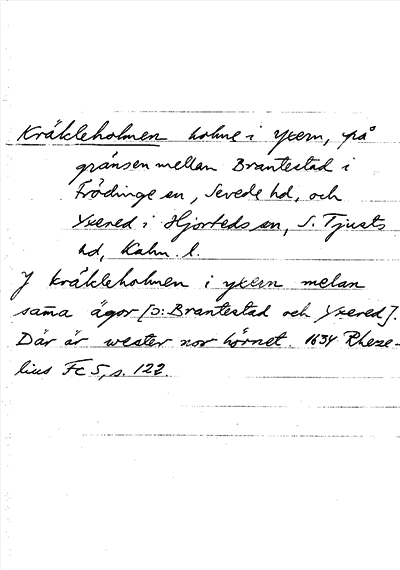 Kräkleholmen holme i Yxern, på
gränsen mellan Brantestad i
Frödinge sn, Sevede hd, och
Yxered i Hjorteds sn, S. Tjusts
hd, Kalm. l.
J kräkleholmen i yxern melan
sama ägor [ɔ: Brantestad och Yxered].
Där är wester nor hörnet. 1634 Rheze-
lius Fc 5, s. 122